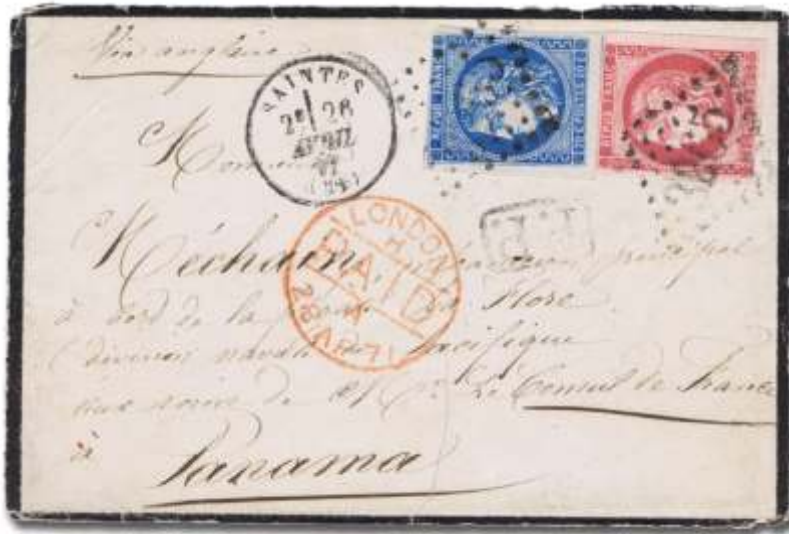 Via anglaise
SAINTES
2E 26
AVRIL
71
REPUB. FRANC.
REPUB. FRANC.
Monsieur
LONDON
PAID
28 AP 71
P.D.
Méchain, principal
à bord de la Flore
(division navale Pacifique
aux soins de Mr Le Consul de France
à
Panama